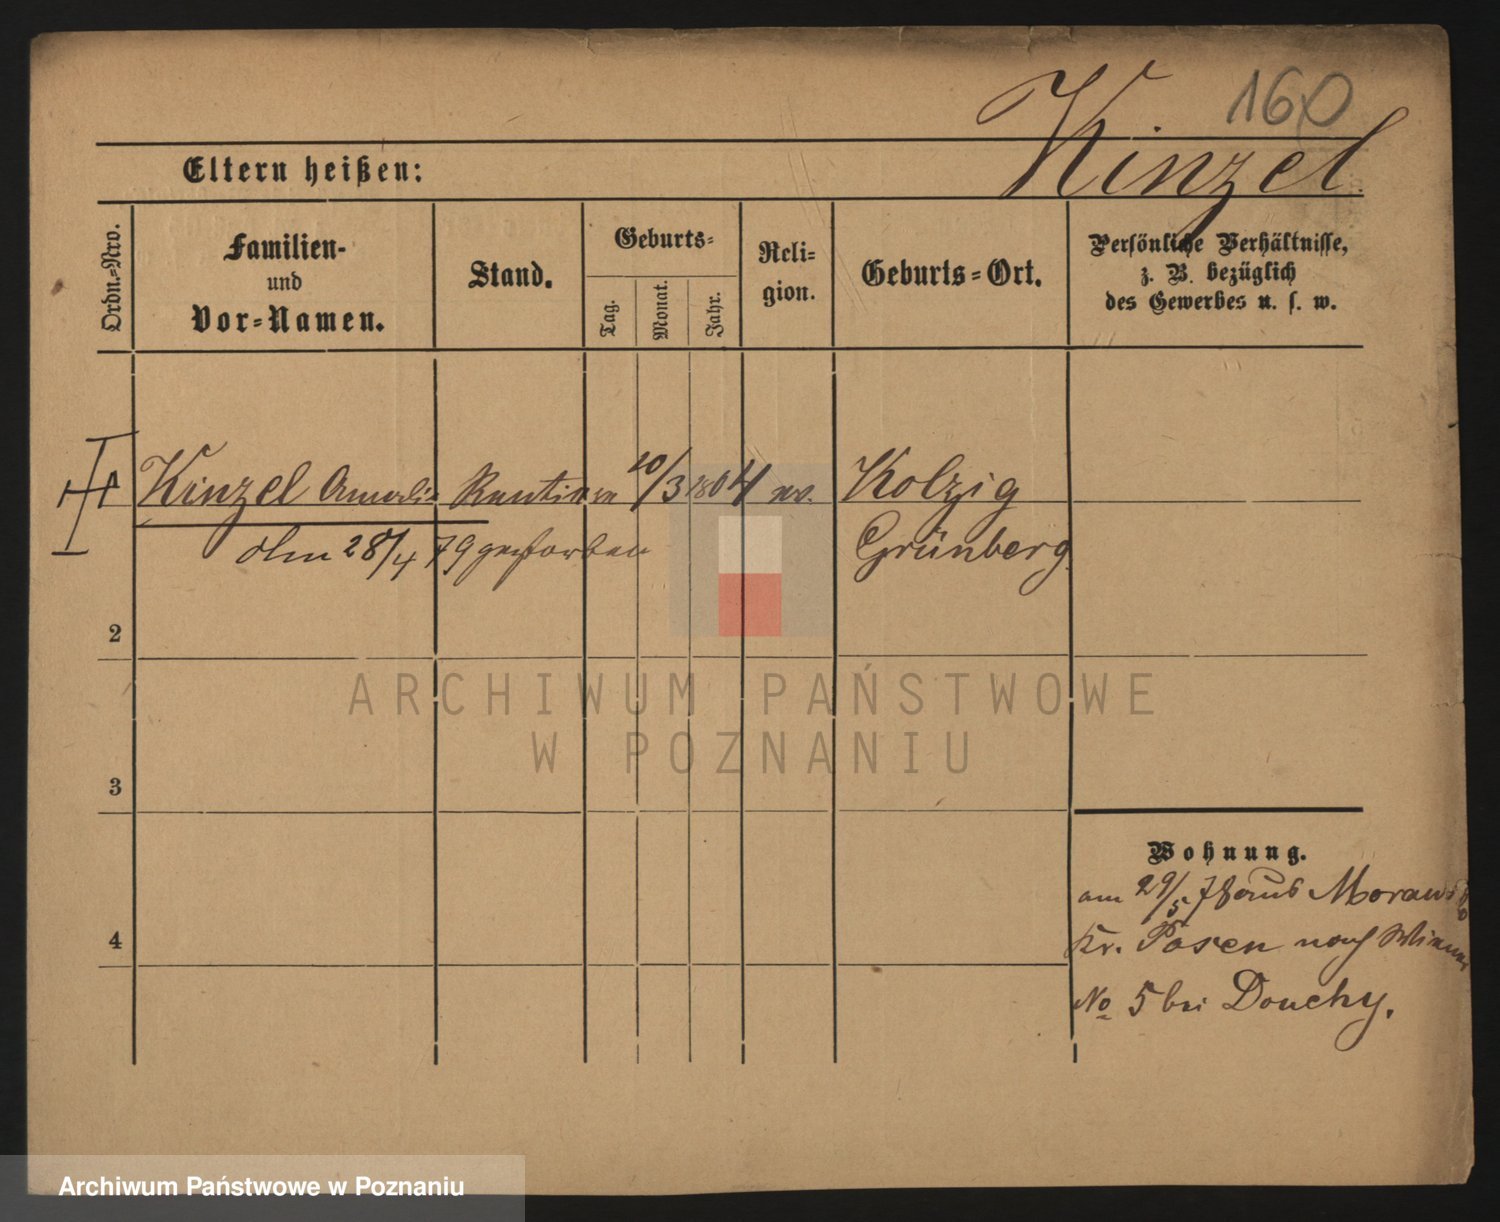 160
Kinzel
Eltern heißen:
Ordn.=Nro.
Familien-
und
Vor=Namen.
Stand.
Geburts=
Tag.
Monat.
Jahr.
Reli=
gion.
Geburts=Ort.
Persönliche Verhältnisse,
z. B. bezüglich
des Gewerbes u. s. w.
Kinzel Amalie Rentiere 10/3 1804 ev. Kolzig
Grünberg
28/4 79 gestorben
2
3
4
Wohnung.
am 29/5 78 aus Morawsko
Kr. Posen nach
No 5 bei Douchy.
ARCHIWUM PAŃSTWOWE
W POZNANIU
Archiwum Państwowe w Poznaniu